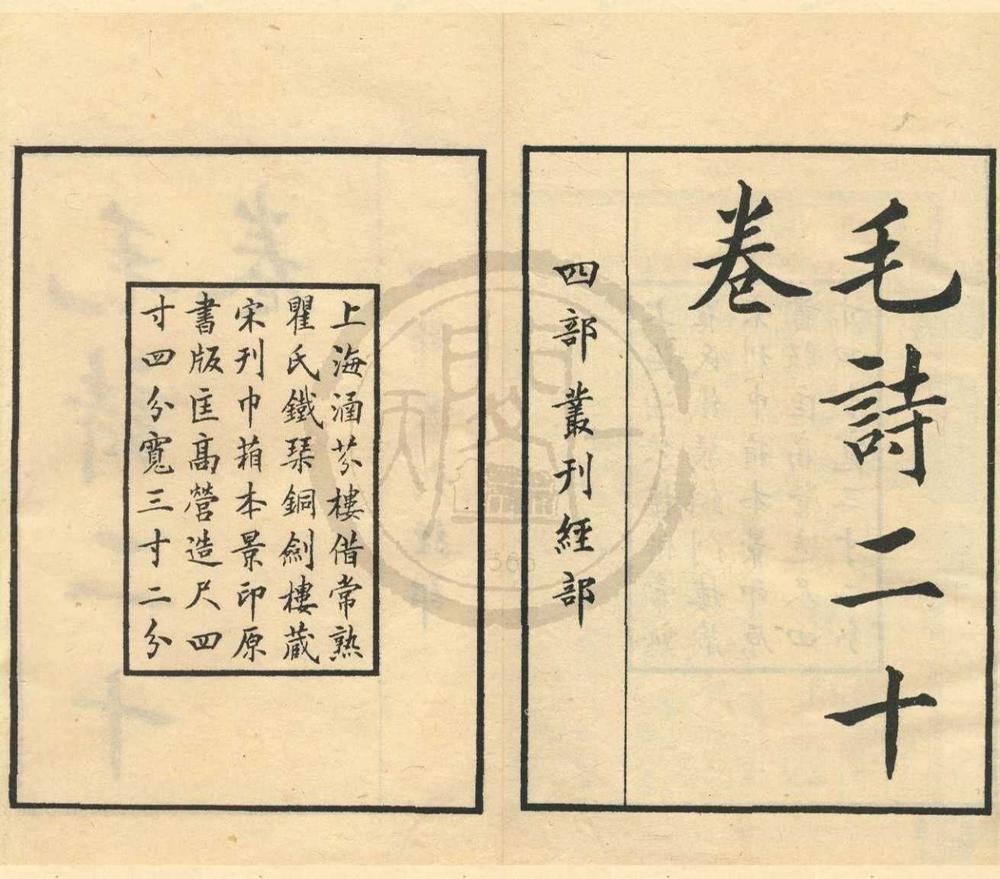 毛詩二十
卷
四部叢刊經部
上海涵芬樓借常熟
瞿氏鐵琴銅劍樓蔵
宋刊巾箱本景印原
書版匡髙營造尺四
寸四分寬三寸二分